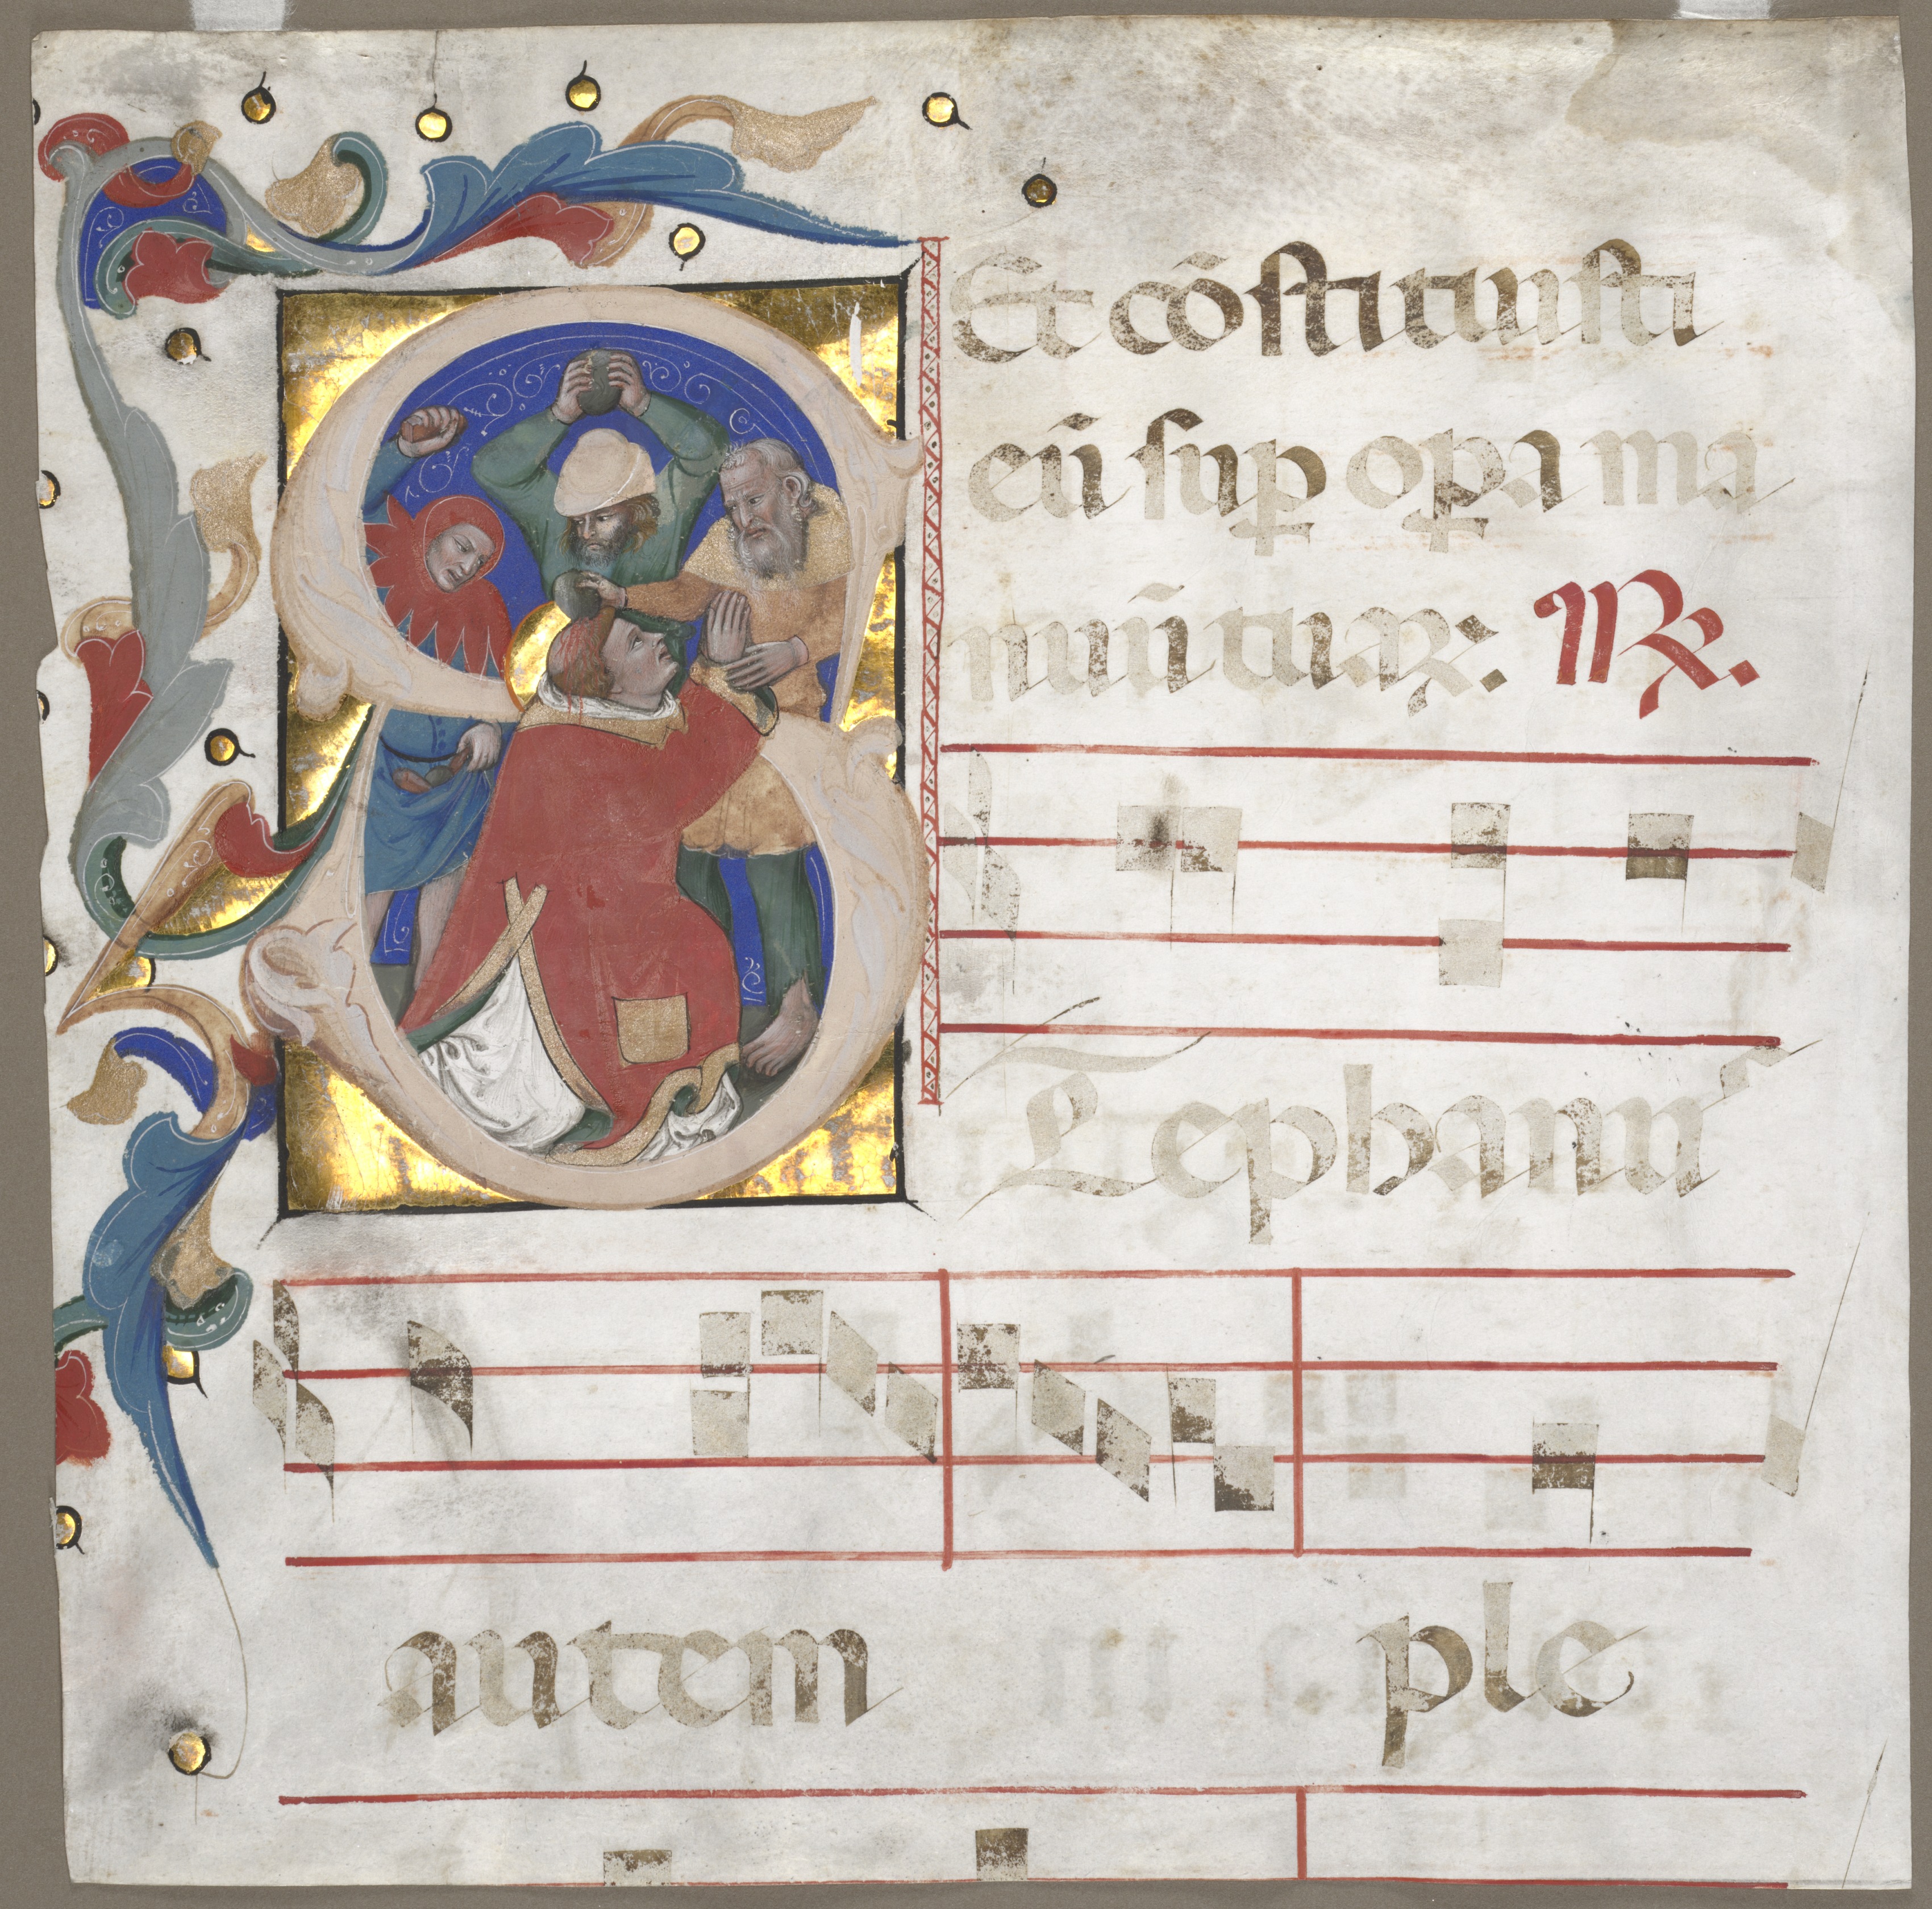 Et cō̄stituisti
eū sup̱ op̱a ma
nuū̄ tuaꝝ: ℟.
S Tephanus
autem ple